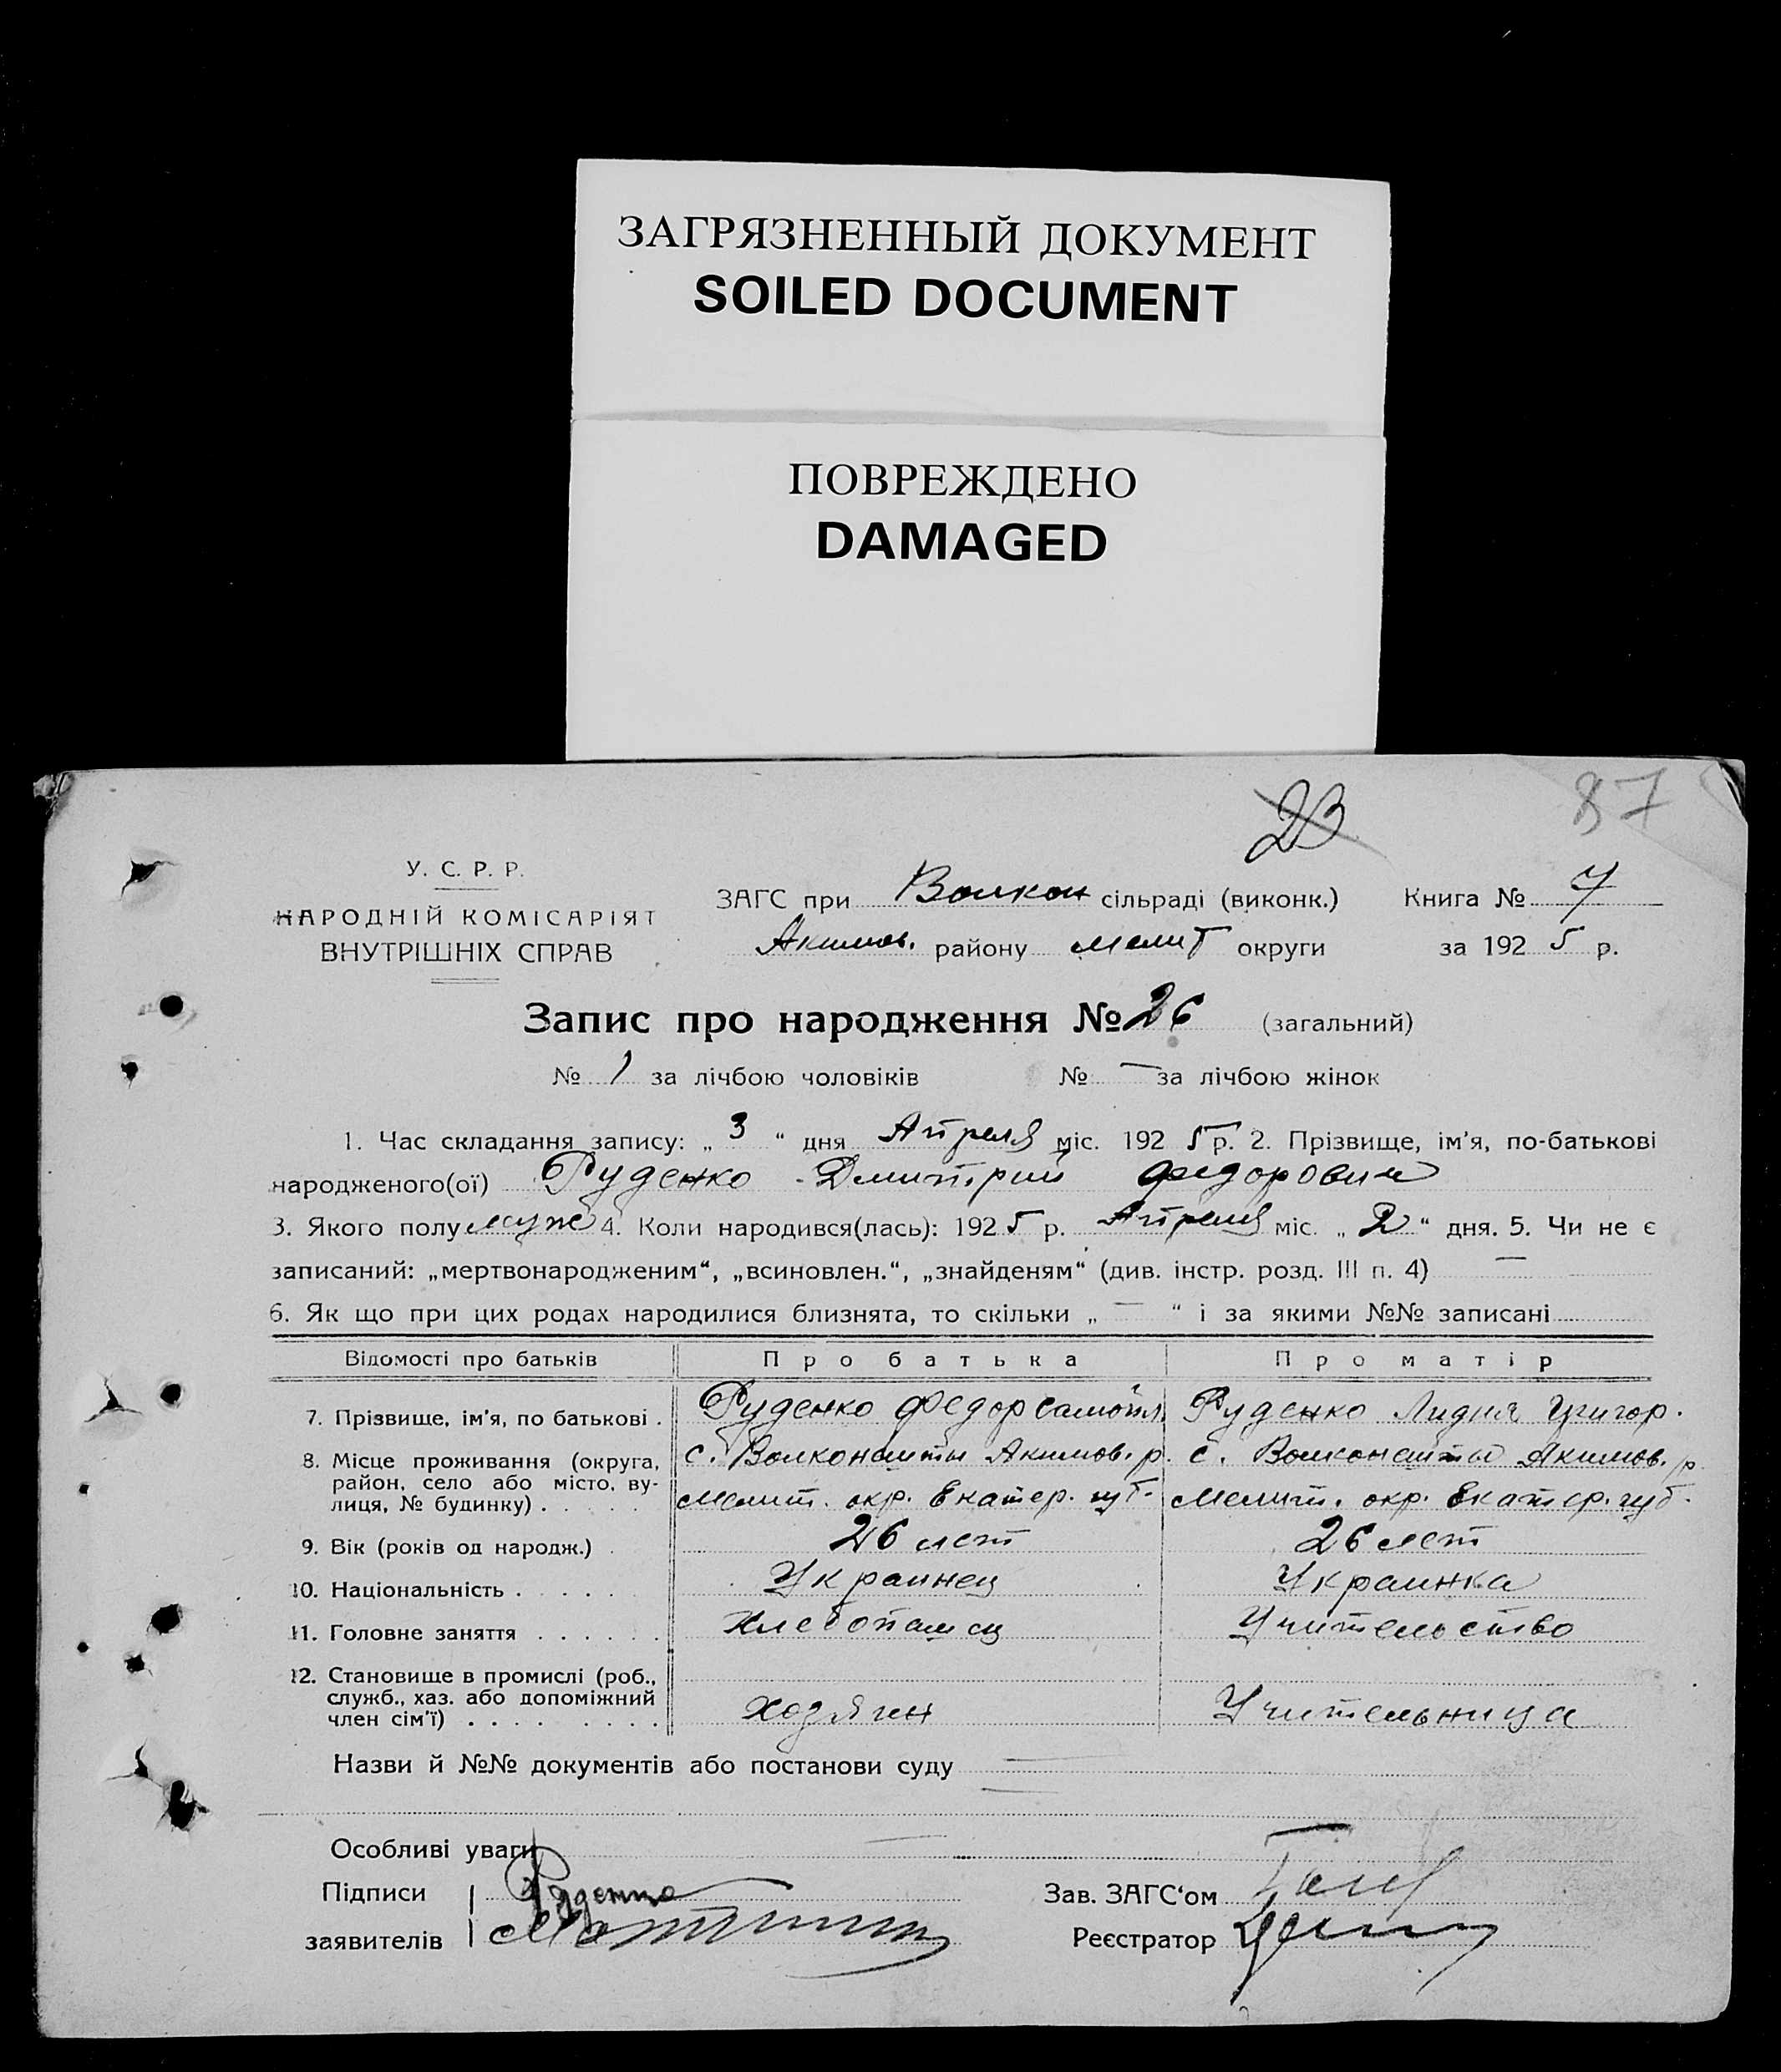 ЗАГРЯЗНЕННЫЙ ДОКУМЕНТ
SOILED DOCUMENT
ПОВРЕЖДЕНО
DAMAGED
23 87
У. С. Р. Р.
НАРОДНІЙ КОМІСАРІЯТ
ВНУТРІШНІХ СПРАВ
ЗАГС при Волкон сільраді (виконк.) Книга № 7
Акимов. району Мелит округи за 1925 р.
Запис про народження № 26 (загальний)
№ 1 за лічбою чоловіків № — за лічбою жінок
1. Час складання запису: „ 3 “ дня Апреля міс. 1925 р. 2. Прізвище, ім'я, по-батькові
народженого(ої) Руденко Дмитрий Федорович
3. Якого полу муж 4. Коли народився(лась): 1925 р. Апреля міс. „ 2 “ дня. 5. Чи не є
записаний: „мертвонародженим“, „всиновлен.“, „знайденям“ (див. інстр. розд. III п. 4) —
6. Як що при цих родах народилися близнята, то скільки „ — “ і за якими №№ записані
Відомості про батьків Про батька Про матір
7. Прізвище, ім'я, по батькові . Руденко Федор Самойл. Руденко Лидия Григор.
8. Місце проживання (округа, с. Волконешты Акимов. р. с. Волконешты Акимов. р
район, село або місто, ву-
лиця, № будинку) . . . . . Мелит. окр. Екатер. губ. Мелит. окр. Екатер. губ.
9. Вік (років од народж.) . 26 лет 26 лет
10. Національність . . . . . Украинец Украинка
11. Головне заняття . . . . . . Хлебопашец Учительство
12. Становище в промислі (роб.,
служб., хаз. або допоміжний
член сім'ї) . . . . . . . . Хозяин Учительница
Назви й №№ документів або постанови суду
Особливі уваги
Підписи Руденко Зав. ЗАГС‘ом
заявителів Реєстратор